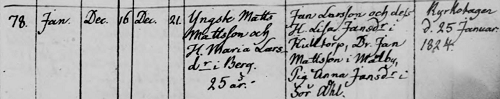 78. Jan. Dec. 16 Dec. 21. Yngste Matts
Mattsson och
H. Maria Lars
dr i Berg.
25 år.
Jan Larsson och des
H. Lisa Jansdr i
Kulltorp, Dr. Jan
Mattson i Malby,
Pig. Anna Jansdr i
Sör Åhl.
Kyrkotagen
d. 25 Januar.
1824.